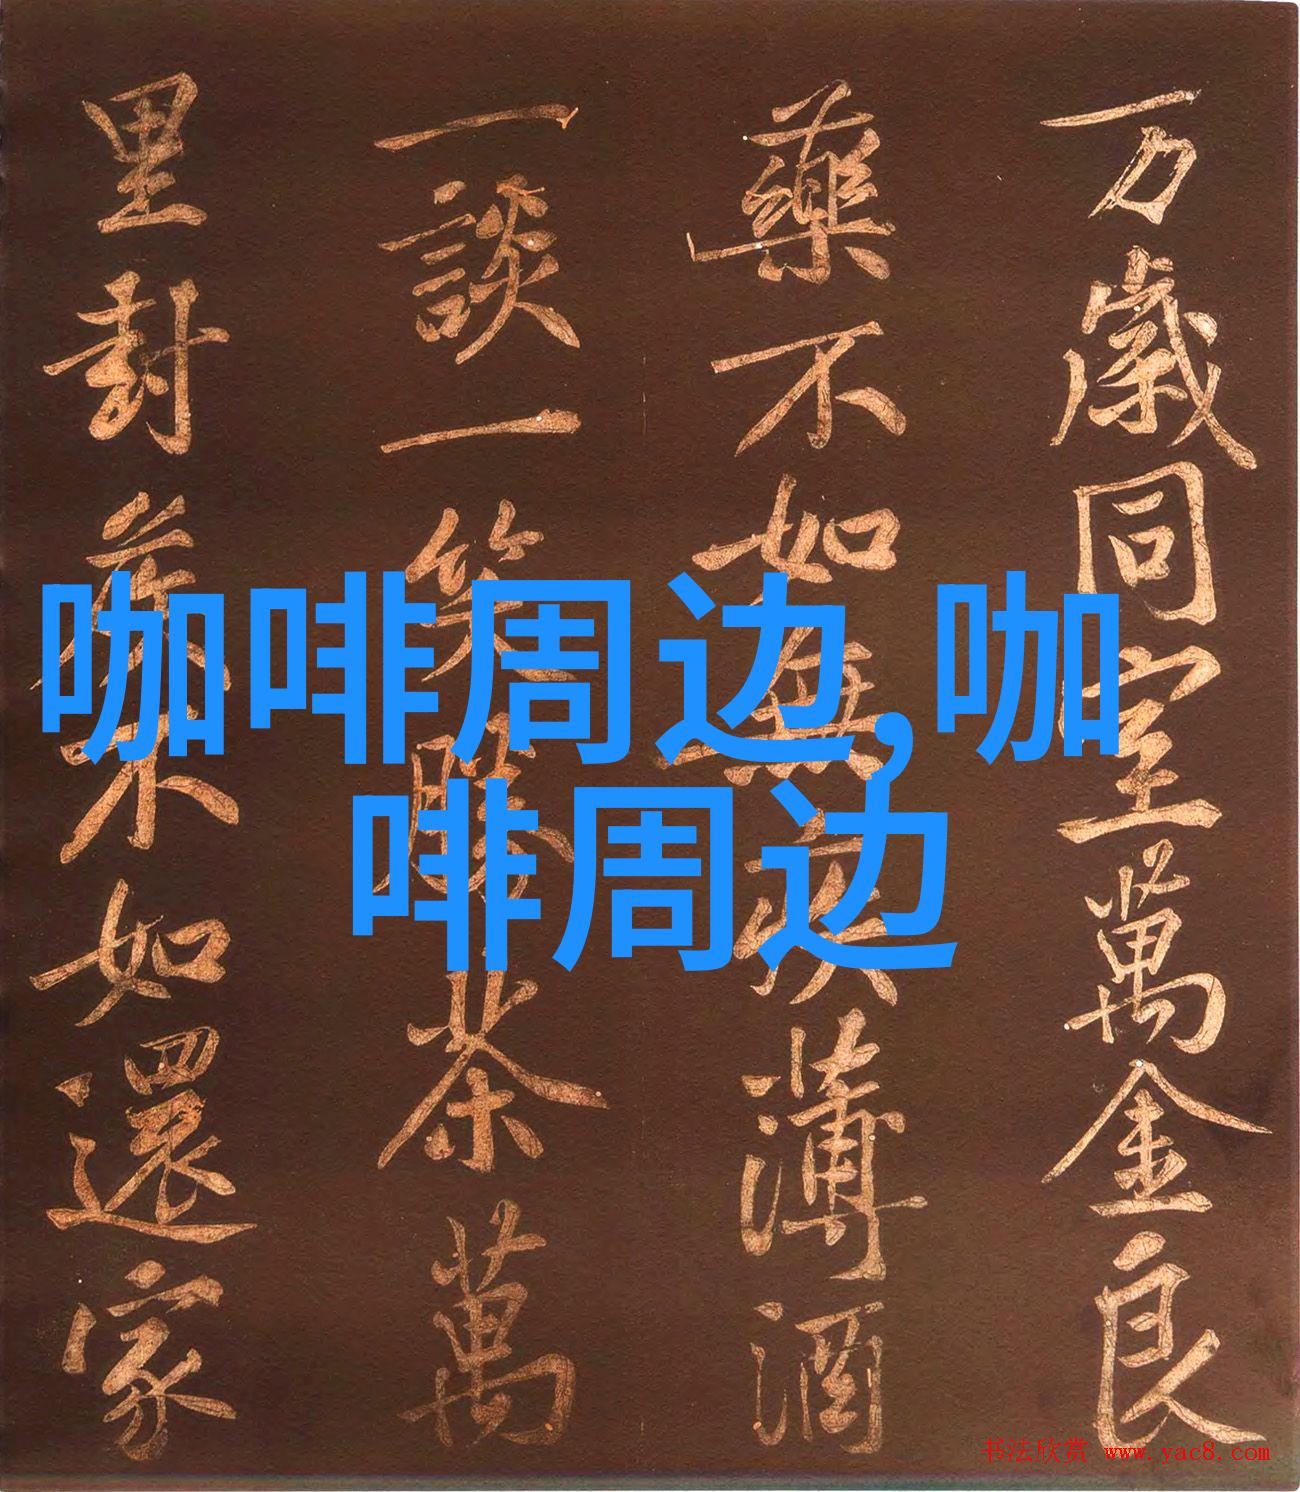 咖啡周边,咖
啡周边
万歲同室萬金良
藥不如無疾薄酒
一談一笑勝茶萬
里封侯不如還家
书法欣赏 www.yac8.com